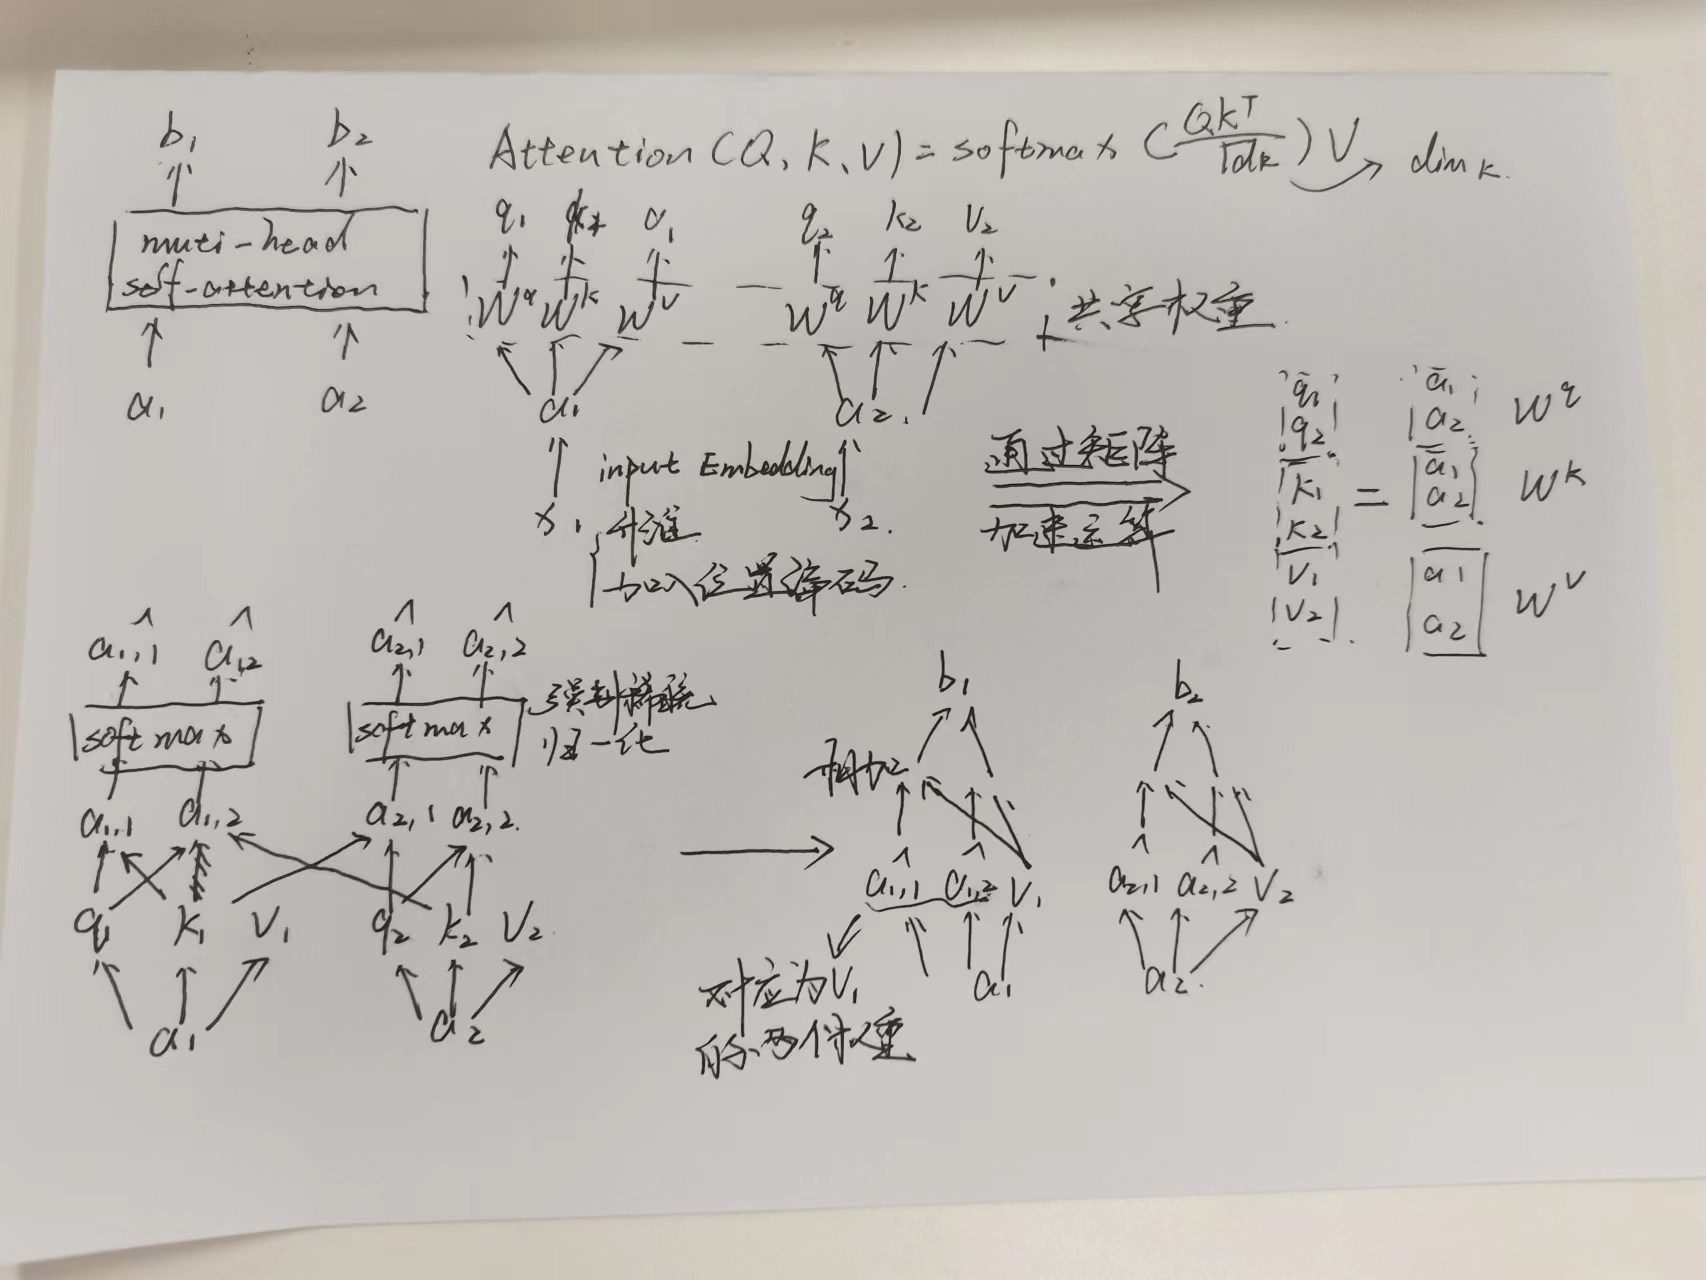 b₁ b₂
muti-head
self-attention
a₁ a₂
Attention (Q, K, V) = softmax (QKᵀ/√dk) V → dim k.
q₁ v₁ q₂ k₂ v₂
W^q W^k W^v W^q W^k W^v
共享权重
a₁ a₂
input Embedding
x₁ x₂
升维
加入位置编码
通过矩阵
加速运算
q₁ a₁
q₂ a₂ W^q
k₁ = a₁
k₂ a₂ W^k
v₁ a₁
v₂ a₂ W^v
â₁,₁ â₁,₂ â₂,₁ â₂,₂
softmax softmax
归一化
a₁,₁ a₁,₂ a₂,₁ a₂,₂
q₁ k₁ v₁ q₂ k₂ v₂
a₁ a₂
b₁ b₂
相加
â₁,₁ â₁,₂ v₁ â₂,₁ â₂,₂ v₂
a₁ a₂
对应为V₁
的两个权重